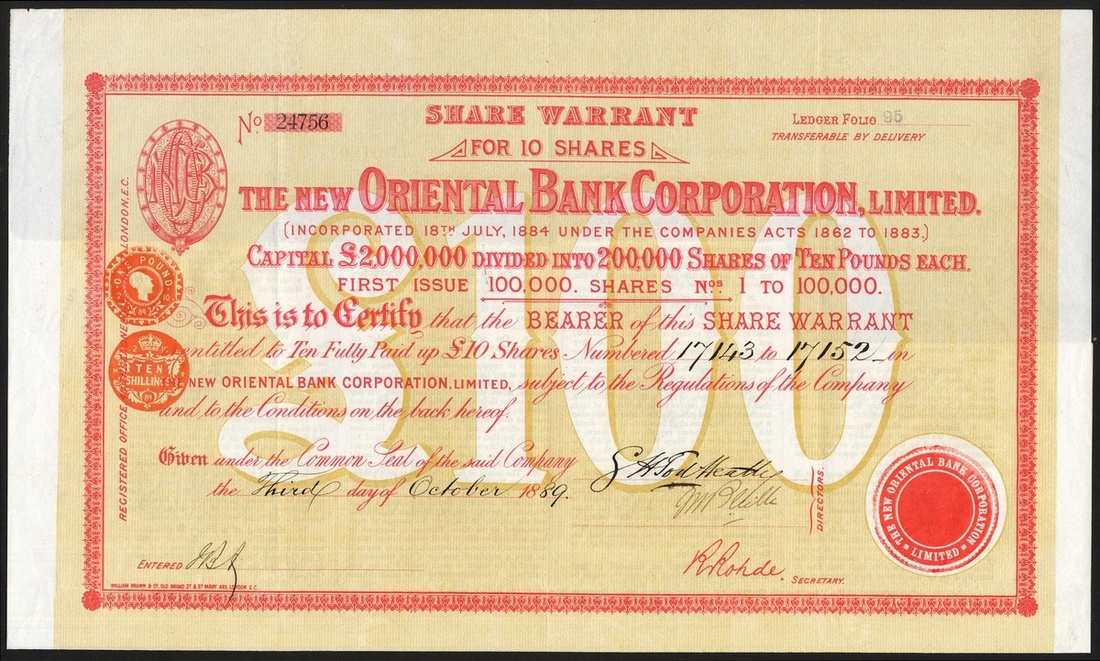 No. 24756
SHARE WARRANT
LEDGER FOLIO 95
TRANSFERABLE BY DELIVERY
FOR 10 SHARES
THE NEW ORIENTAL BANK CORPORATION, LIMITED.
(INCORPORATED 18TH JULY, 1884 UNDER THE COMPANIES ACTS 1862 TO 1883.)
CAPITAL £2,000,000 DIVIDED INTO 200,000 SHARES OF TEN POUNDS EACH.
FIRST ISSUE 100,000. SHARES Nos. 1 TO 100,000.
£100
This is to Certify that the BEARER of this SHARE WARRANT
entitled to Ten Fully Paid up £10 Shares Numbered 17143 to 17152 in
NEW ORIENTAL BANK CORPORATION, LIMITED, subject to the Regulations of the Company
and to the Conditions on the back hereof.
Given under the Common Seal of the said Company
the Third day of October 1889.
DIRECTORS.
ENTERED
R Rohde. SECRETARY.
WILLIAM BROWN & Co. OLD BROAD ST & ST MARY AXE LONDON E.C.
REGISTERED OFFICE
LONDON, E.C.
ONE POUND
TEN
SHILLINGS
THE NEW ORIENTAL BANK CORPORATION
LIMITED